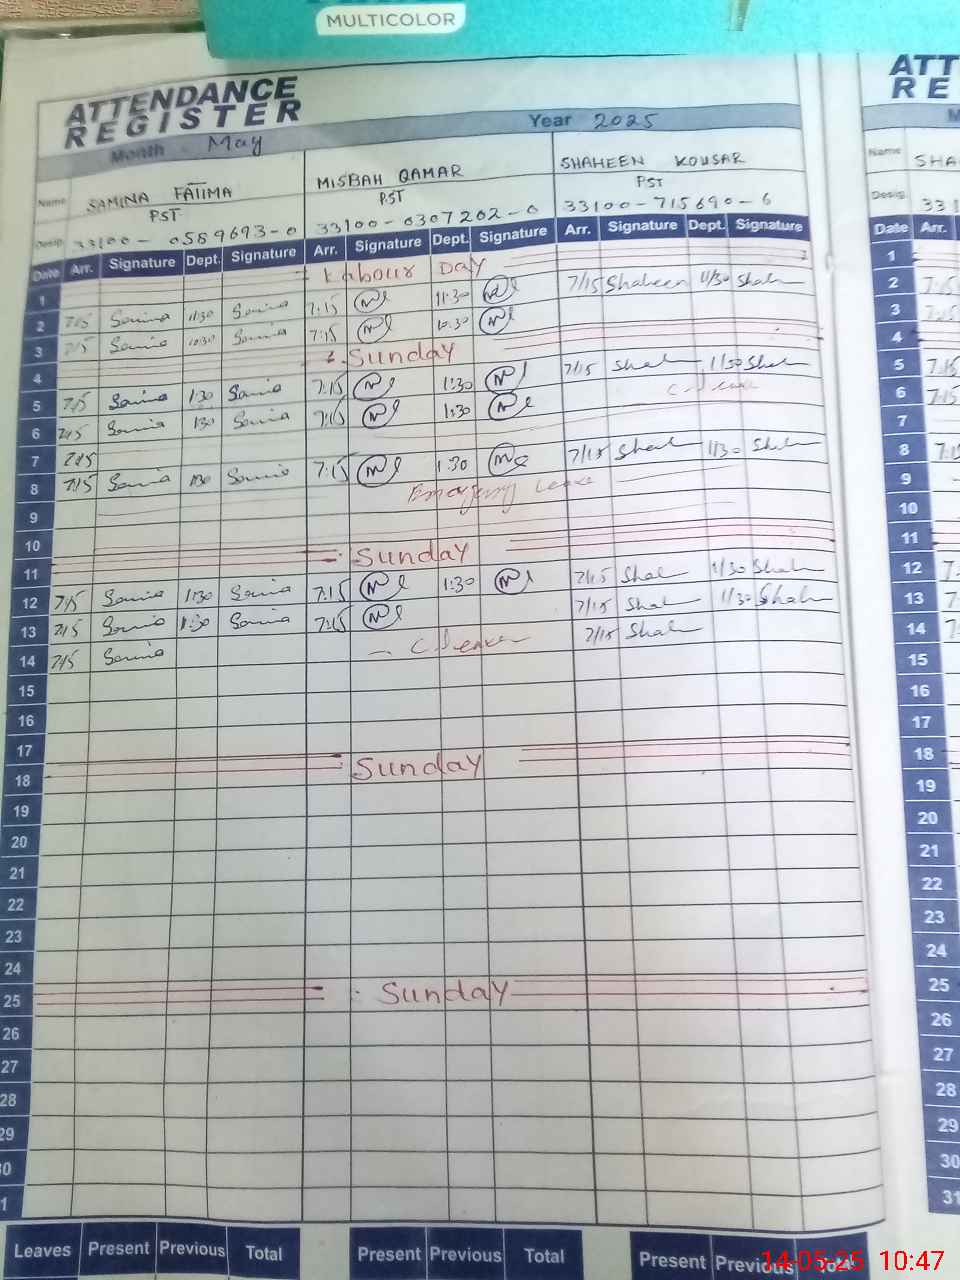 MULTICOLOR
ATTENDANCE REGISTER
Month May Year 2025
Name SAMINA FATIMA MISBAH QAMAR SHAHEEN KOUSAR
PST PST PST
Desig. 33100-0589693-0 33100-0307202-0 33100-715690-6
Date Arr. Signature Dept. Signature Arr. Signature Dept. Signature Arr. Signature Dept. Signature
1 Labour Day
2 7:15 Samina 11:30 Samina 7:15 11:30 7/15 Shaheen 11/30 Shah
3 7:15 Samina 10:30 Samina 7:15 10:30
4 Sunday
5 7:15 Samina 1:30 Samina 7:15 1:30 7/15 Shah 1/30 Shah
6 7:15 Samina 1:30 Samina 7:15 1:30 C. Leave
7 7:15
8 7:15 Samina 1:30 Samina 7:15 1:30 7/15 Shah 1/30 Shah
9 Emergency Leave
10
11 Sunday
12 7:15 Samina 1:30 Samina 7:15 1:30 7/15 Shah 1/30 Shah
13 7:15 Samina 1:30 Samina 7:15 7/15 Shah 1/30 Shah
14 7:15 Samina C. Leave 7/15 Shah
15
16
17
18 Sunday
19
20
21
22
23
24
25 Sunday
26
27
28
29
30
31
Leaves Present Previous Total Present Previous Total Present Previous Total
ATT
RE
M
Name SHA
Desig. 331
Date Arr.
1
2 7:15
3 7:15
4
5 7:15
6 7:15
7
8
9
10
11
12
13
14
15
16
17
18
19
20
21
22
23
24
25
26
27
28
29
30
31
14-05-25 10:47